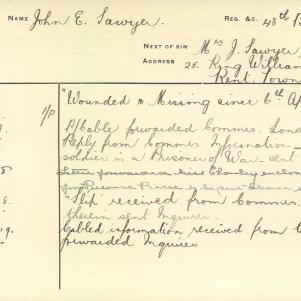 NAME John E. Sawyer. REG. & Co. 48th B
NEXT OF KIN Mrs J. Sawyer
ADDRESS 25. King William
Kent Town
1/P "Wounded & Missing since 6th Ap
P/Cable forwarded Commrs. Lond
Reply from Commrs Information
soldier is a Prisoner of War sent
8 "Slip" received from Commrs.
therein sent Inquirer.
19. Cabled information received from C
forwarded Inquirer